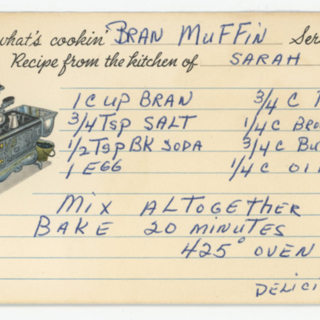 what's cookin' BRAN MUFFIN Ser
Recipe from the kitchen of SARAH
1 CUP BRAN 3/4 C
3/4 Tsp SALT 1/4 C BRO
1/2 Tsp BK SODA 3/4 C BU
1 EGG 1/4 C OI
MIX ALTOGETHER
BAKE 20 MINUTES
425° OVEN
DELICI